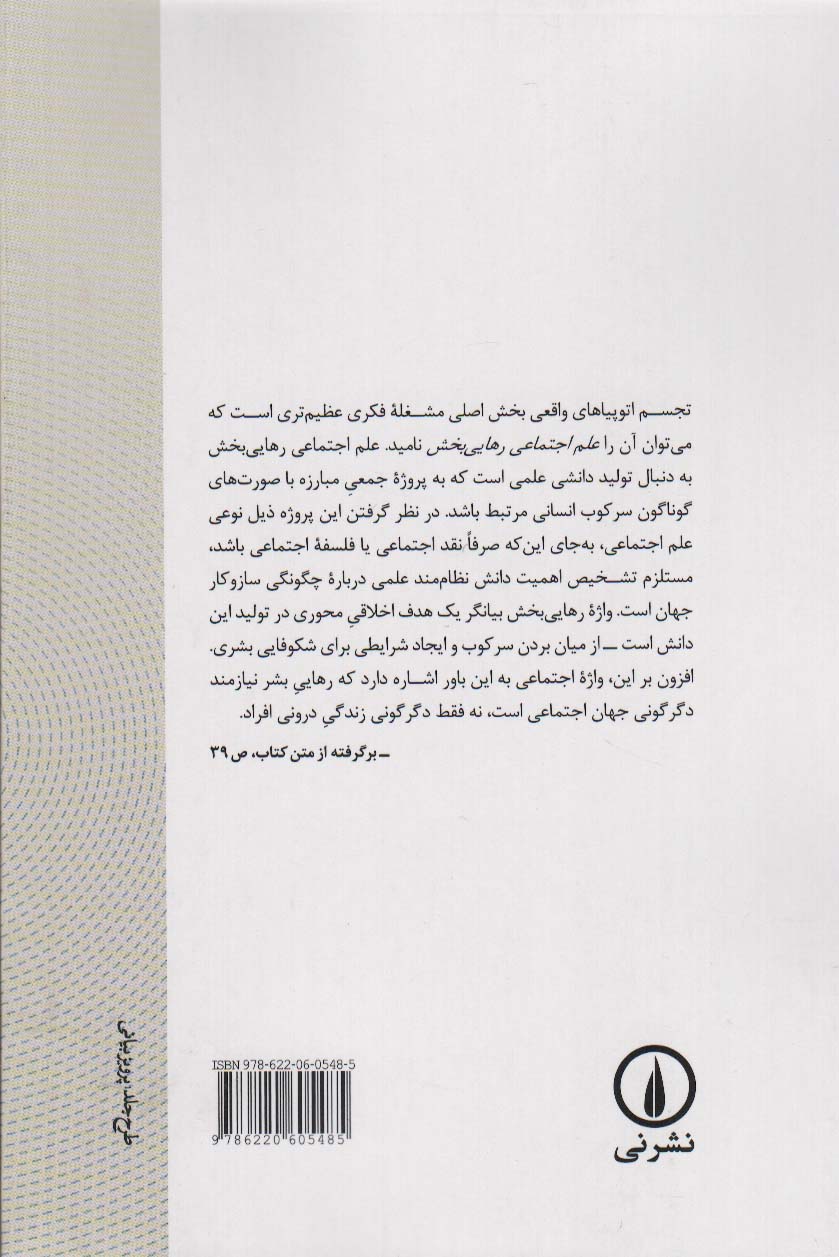 تجسم اتوپیاهای واقعی بخش اصلی مشغلهٔ فکری عظیم‌تری است که
می‌توان آن را علم اجتماعی رهایی‌بخش نامید. علم اجتماعی رهایی‌بخش
به دنبال تولید دانشی علمی است که به پروژهٔ جمعیِ مبارزه با صورت‌های
گوناگون سرکوب انسانی مرتبط باشد. در نظر گرفتن این پروژه ذیل نوعی
علم اجتماعی، به‌جای این‌که صرفاً نقد اجتماعی یا فلسفهٔ اجتماعی باشد،
مستلزم تشخیص اهمیت دانش نظام‌مند علمی دربارهٔ چگونگی سازوکار
جهان است. واژهٔ رهایی‌بخش بیانگر یک هدف اخلاقیِ محوری در تولید این
دانش است ــ از میان بردن سرکوب و ایجاد شرایطی برای شکوفایی بشری.
افزون بر این، واژهٔ اجتماعی به این باور اشاره دارد که رهاییِ بشر نیازمند
دگرگونی جهان اجتماعی است، نه فقط دگرگونی زندگیِ درونی افراد.
ــ برگرفته از متن کتاب، ص ۳۹
طرح جلد: پرویز بیانی
ISBN 978-622-06-0548-5
9 786220 605485
نشرنی